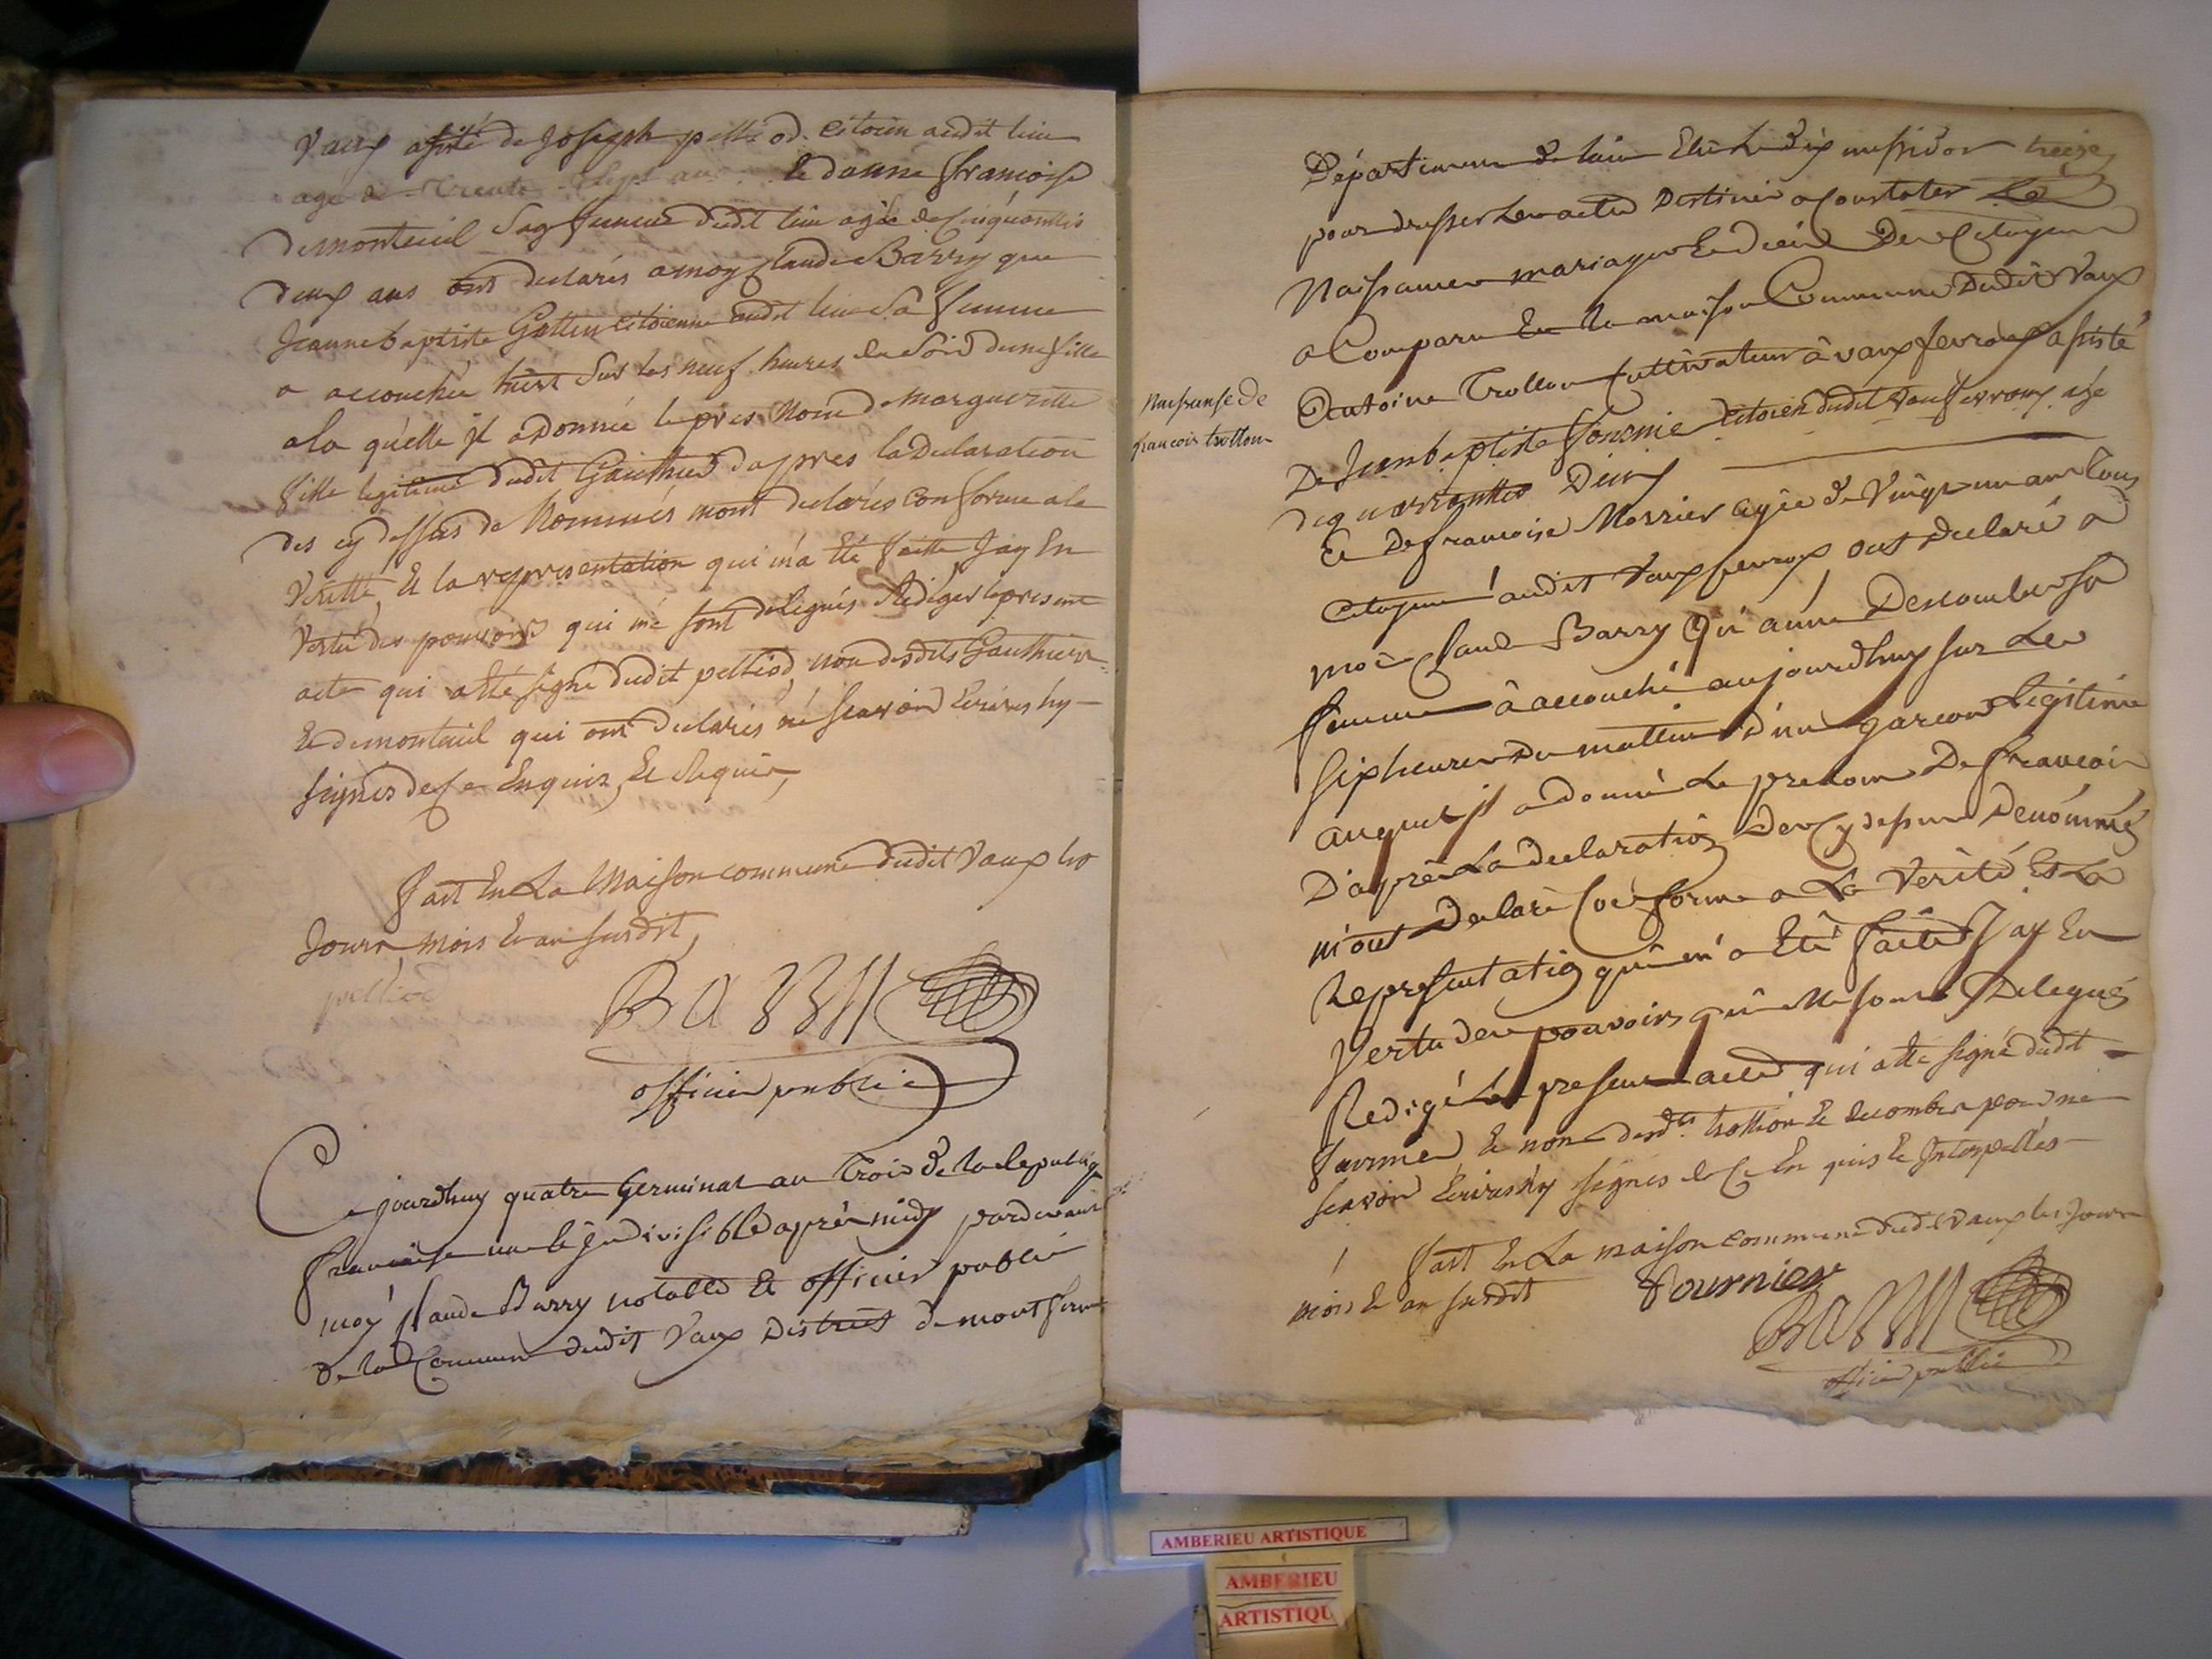 Vaux assisté de Joseph pelliod citoien audit lieu
agé de trente sept ans et danne francoise
demonteuil sag femme dudit lieu agée de cinquanttes
deux ans ont declarés a moy Claude Barry que
Jeanne baptiste Gottin citoienne audit lieu sa femme
a accouchée hiert sur les neuf heures du soir dune fille
a la quelle jl a donnée le pres Nom de marguerite
fille legitime dudit Gauthier dappres la Declaration
des cy dessus de Nommés mont declarés conforme a la
Verité, Et la representation qui m'a Eté faitte Jay En
Vertu des pouvoirs qui me sont delegués Rédiger le present
acte qui a Eté signé dudit pelliod, non desdits Gauthier
Et demonteuil qui ont declarés né scavoir Ecrires ny
signés de Ce Enquis, Et Requis,
fait En La Maison commune dudit Vaux les
Jours, mois Et an susdit,
pelliod
Barry
officier public
Ce jourdhuy quatre Germinal an Trois de la Republiq
francaise une et Jndivisible après midy pardevant
moy Claude Barry notable Et officier public
De la Commune dudit Vaux District de montferme
Département de lain Elû le dix messidor treize
pour dresser les actes Destinés a Constater Le
Naissances mariages Et decès Des Citoyens
a Comparu En la maison Commune Dudit Vaux
Antoine Trollion Cultivateur à vaux fevroux assisté
De Jeanbaptiste fournié citoien dudit Vaux fevroux agé
de quarranttes Deux
Et De francoise Morrier agée de Vingt un ans tous
Citoyens audit Vaux fevroux ont Declaré a
moi Claude Barry Qu'anne Descombes sa
femme à accouché aujourdhuy sur Les
six heures Du mattin D'un garcon Legitime
auquel jl a donné Le prenom De francois
D'après La declaration Des Cy dessus Denommés
m'ont Declaré Conforme a La Verité Et La
Representation qui m'a Eté faite Jay En
Vertu des pouvoirs qui Me sont Delegués
Redigé Le present acte qui a Eté signé dudit
fournier Et non desdts trollion Et decombes pour ne
scavoir Ecrires ny signés de Ce En quis Et Interpellés
fait En La maison commune dudit Vaux les Jours
mois Et an susdit
fournier
Barry
officier public
Naissanse De
francois trollion
AMBERIEU ARTISTIQUE
AMBERIEU
ARTISTIQU